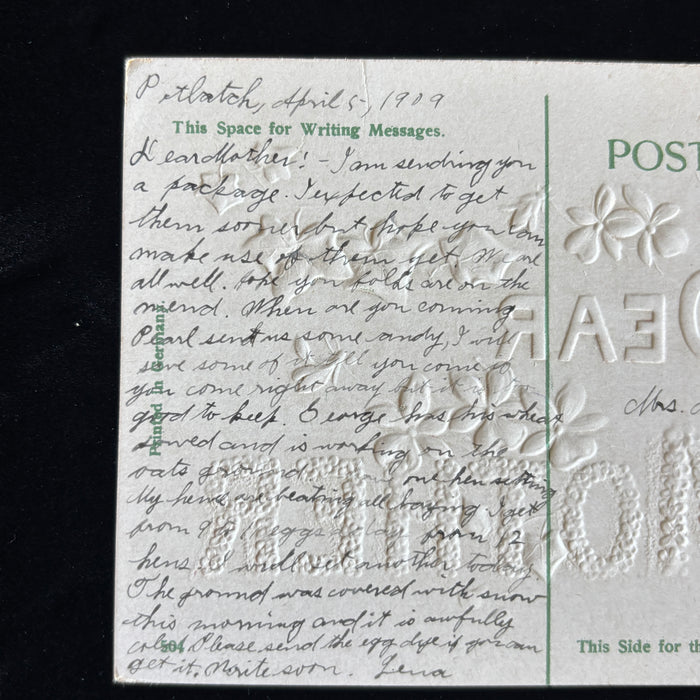 Potlatch, April 5, 1909
This Space for Writing Messages.
Dear Mother! - I am sending you
a package. I expected to get
them sooner but hope you can
make use of them yet. We are
all well. hope you folks are on the
mend. When are you coming
Pearl sent us some candy, I will
save some of it till you come if
you come right away but it is to
good to keep. George has his wheat
sowed and is working on the
oats ground. one hen setting
My hens are beating all laying. I get
from 9 eggs a day from 12
hens. I will set another today.
The ground was covered with snow
this morning and it is awfully
cold. Please send the egg dye if you can
get it. Write soon. Lena
504
Printed in Germany.
POST
DEAR
MOTHER
Mrs.
This Side for th